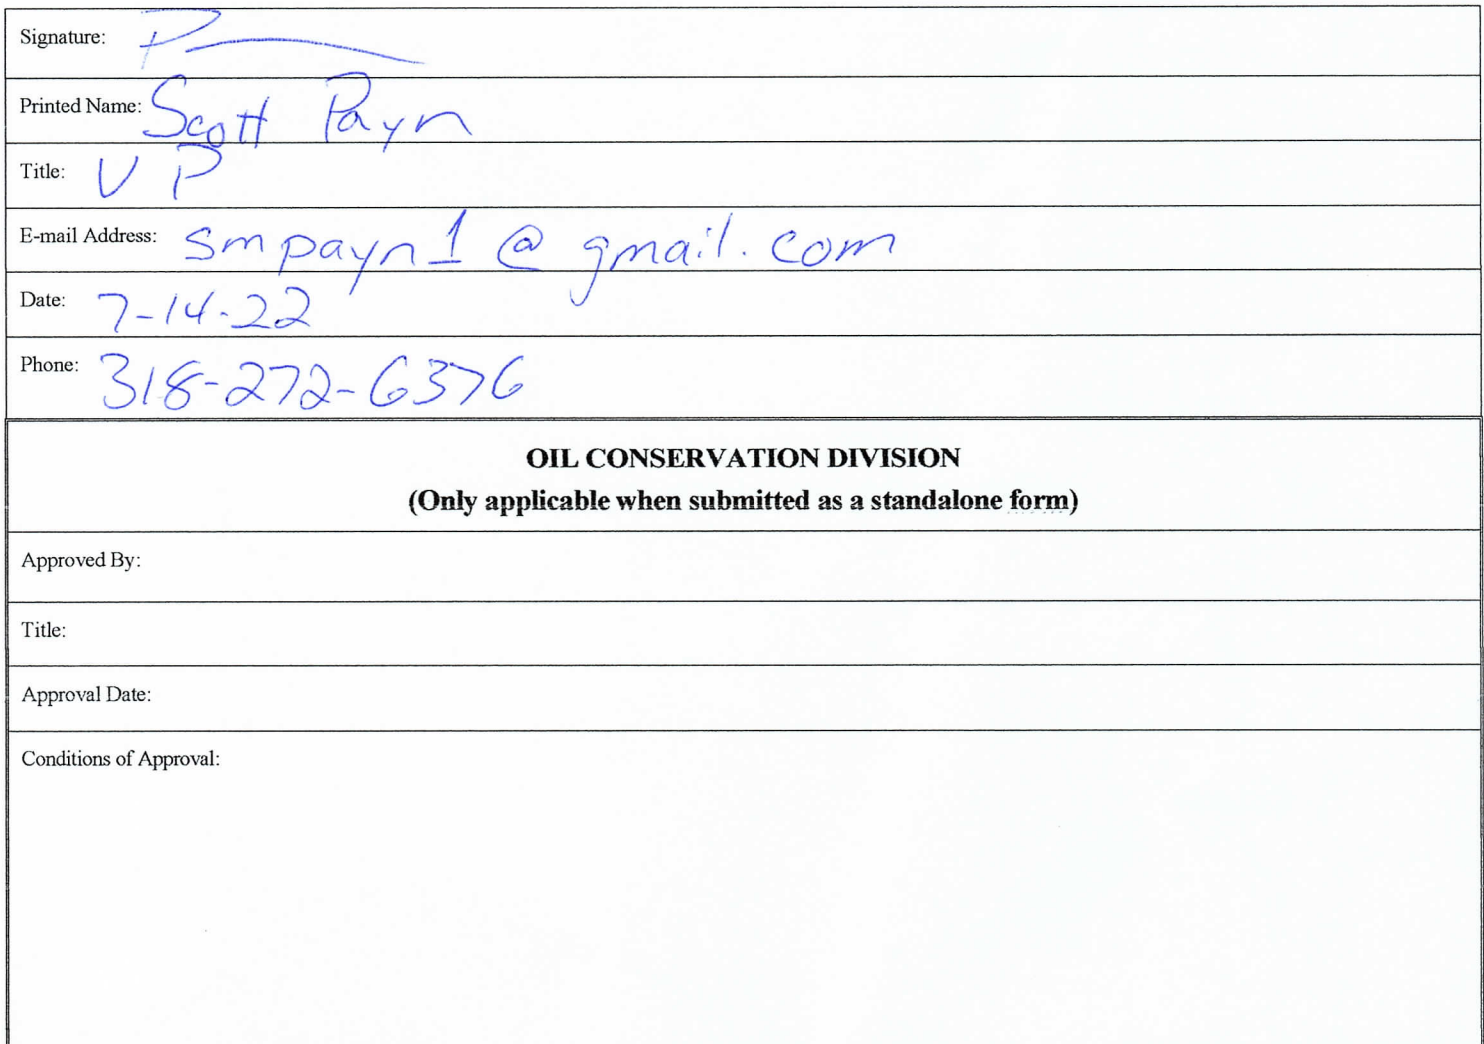 Signature:
Printed Name: Scott Payn
Title: VP
E-mail Address: smpayn1@gmail.com
Date: 7-14-22
Phone: 318-272-6376
OIL CONSERVATION DIVISION
(Only applicable when submitted as a standalone form)
Approved By:
Title:
Approval Date:
Conditions of Approval: